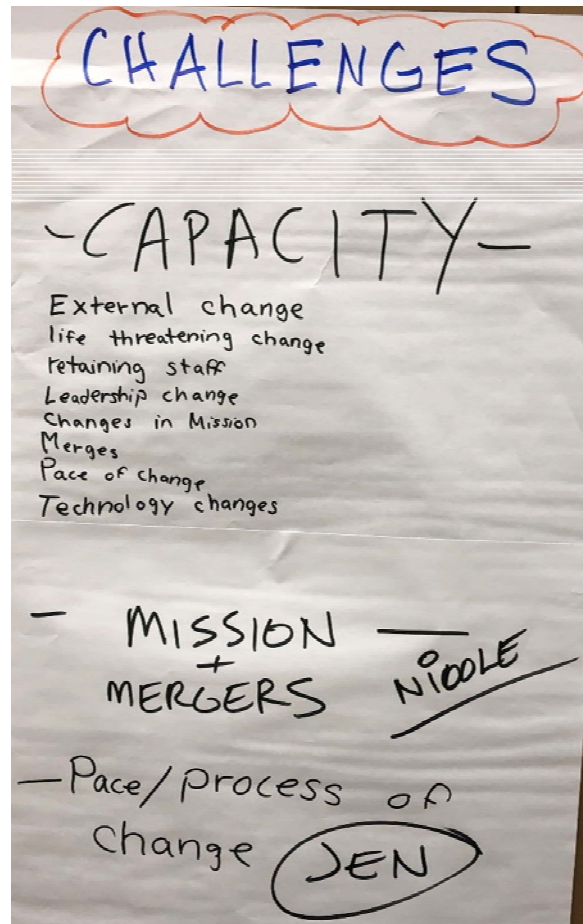 CHALLENGES
- CAPACITY -
External change
life threatening change
retaining staff
Leadership change
Changes in Mission
Merges
Pace of change
Technology changes
- MISSION -
+
MERGERS
NICOLE
- Pace/process of
change JEN